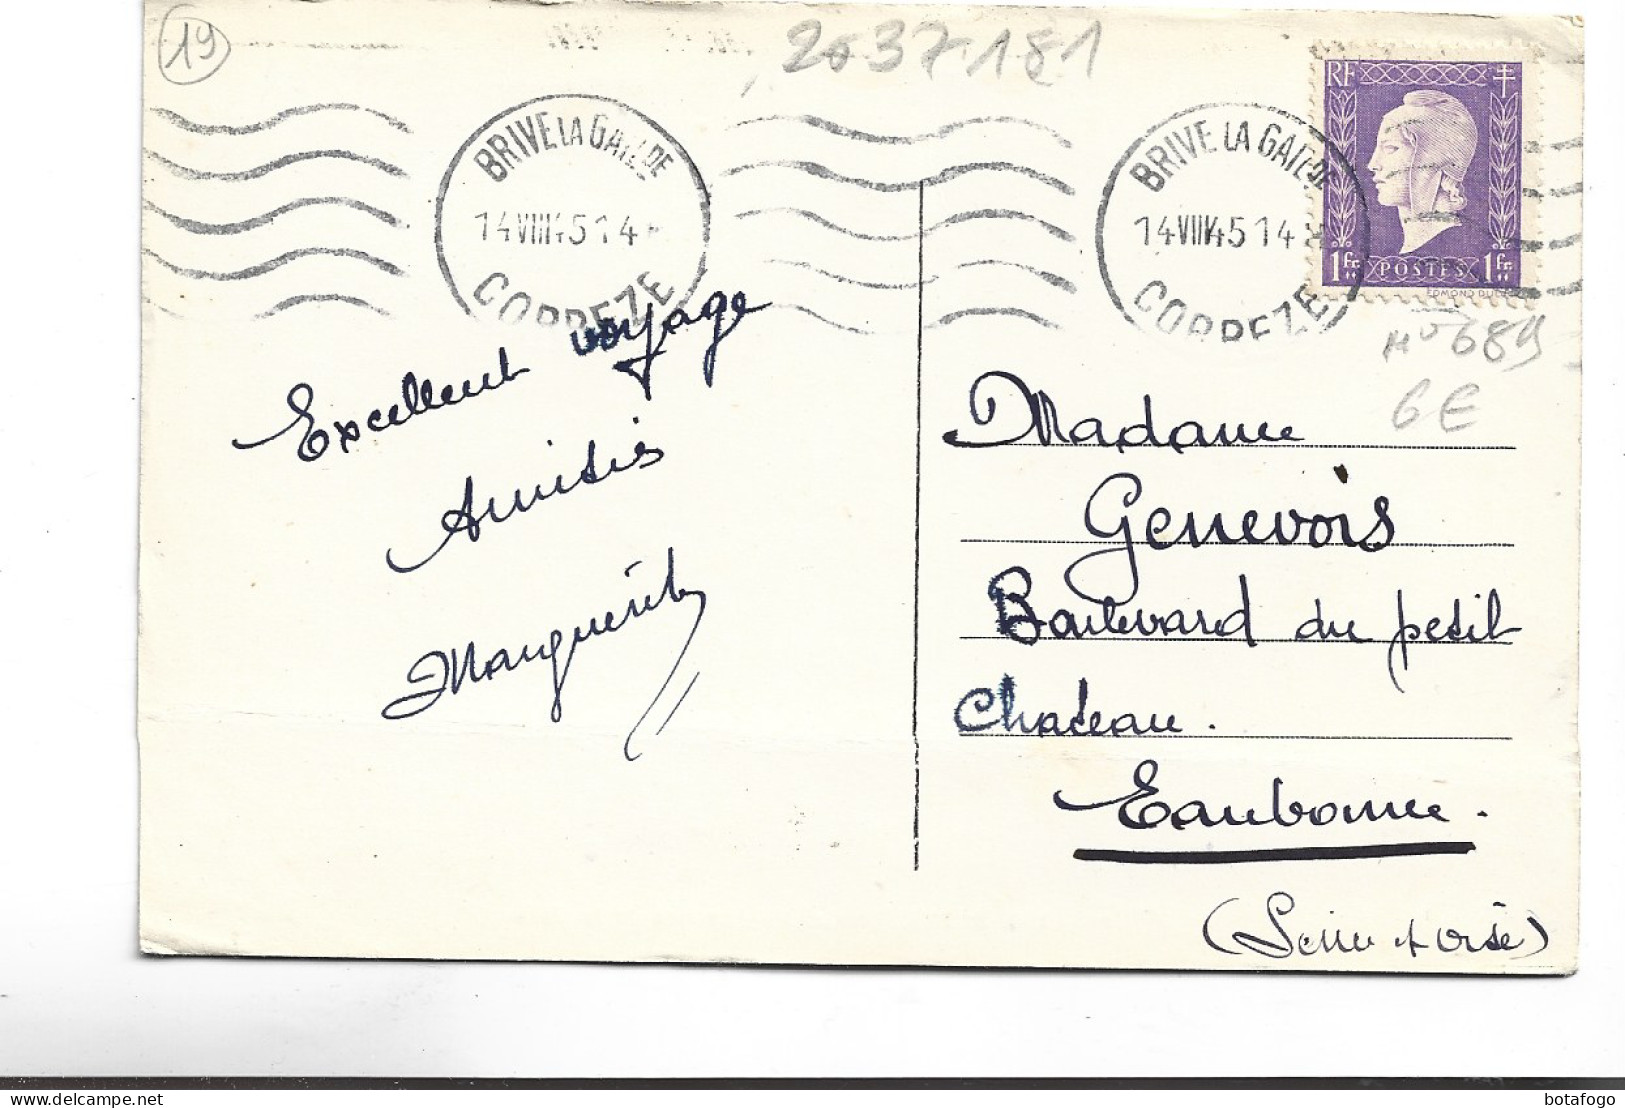 19
2037181
BRIVE LA GAILLDE
14 VIII 45 14 *
CORREZE
BRIVE LA GAILLDE
14 VIII 45 14 *
CORREZE
RF
1fr POSTES 1fr
EDMOND DULAC
N° 689
6€
Excellent voyage
Amitiés
Marguerite
Madame
Genevois
Boulevard du petit
Chateau.
Eaubonne.
(Seine et Oise)
botafogo